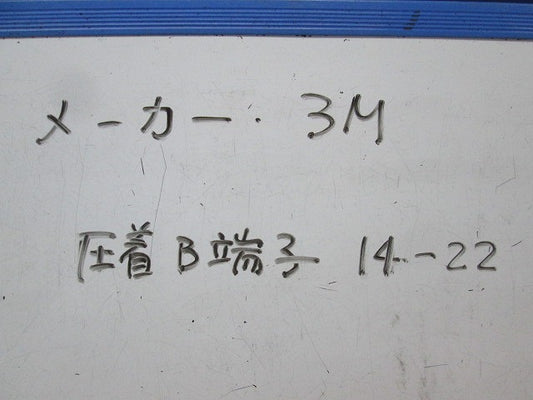 メーカー. 3M
圧着B端子 14-22